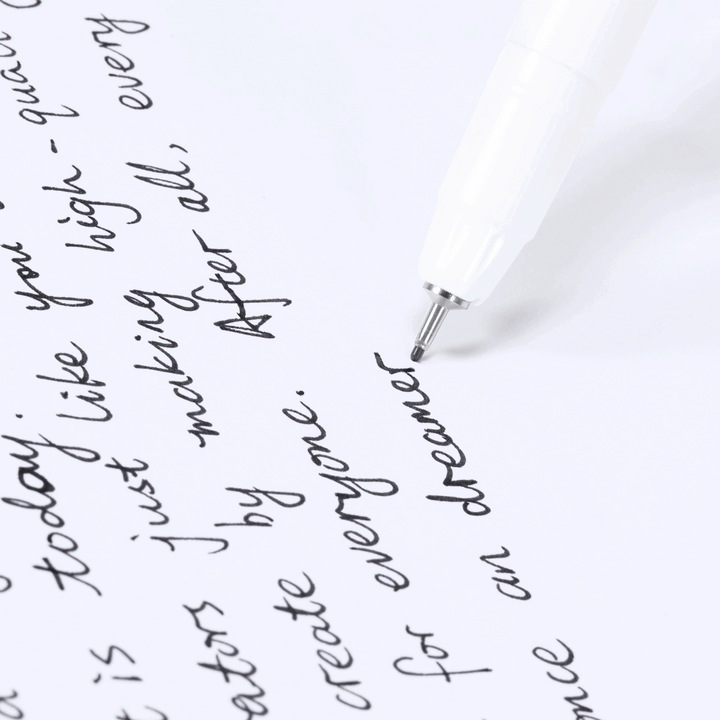 is today
just like you
create by making high-
for everyone. After all, every
an dreamer